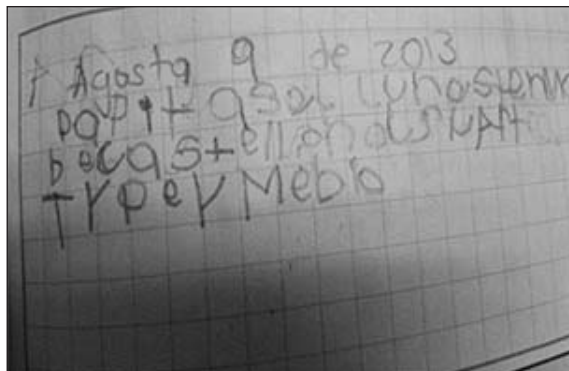 Agosta 9 de 2013
papit asel lunostenm
becastellano
TYPeY Mebio